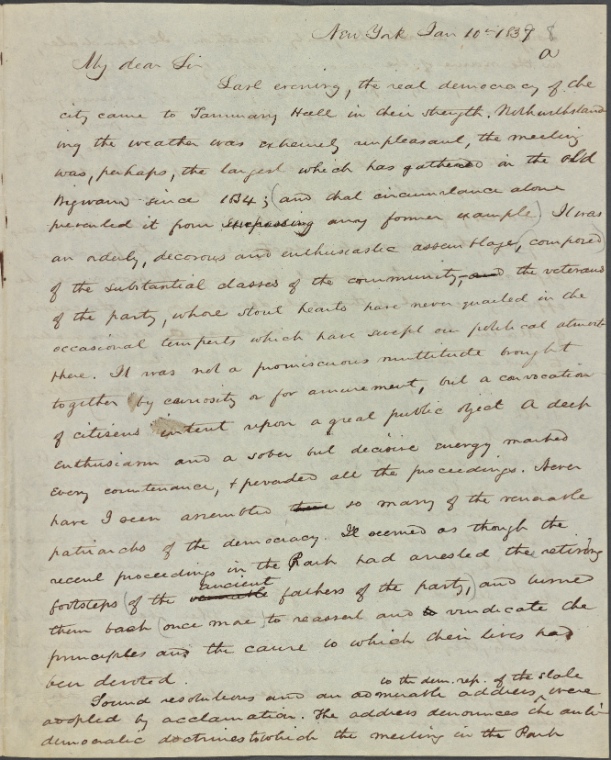 New York Jan 10th 1839
a
My dear Sir
Last evening, the real democracy of the
city came to Tammany Hall in their strength. Nothwithstand
ing the weather was extremely unpleasant, the meeting
was, perhaps, the largest which has gathered in the old
Wigwam since 1834; (and that circumstance alone
prevented it from surpassing any former example) It was
an orderly, decorous and enthusiastic assemblage, (composed)
of the substantial classes of the community, and the veterans
of the party, whose stout hearts have never quailed in the
occasional tempests which have swept our political atmosp
here. It was not a promiscuous multitude brought
together by curiosity or for amusement, but a convocation
of citizens intent upon a great public object A deep
enthusiasm and a sober but decisive energy marked
every countenance, & pervaded all the proceedings. Never
have I seen assembled so many of the venerable
patriarchs of the democracy. It seemed as though the
recent proceedings in the Park had arrested the retiring
footsteps (of the venerable ancient fathers of the party,) and turned
them back (once more) to reassert and to vindicate the
principles and the cause to which their lives had
been devoted.
Sound resolutions and an admirable address to the dem. rep. of the State were
adopted by acclamation. The address denounces the anti-
democratic doctrines to which the meeting in the Park